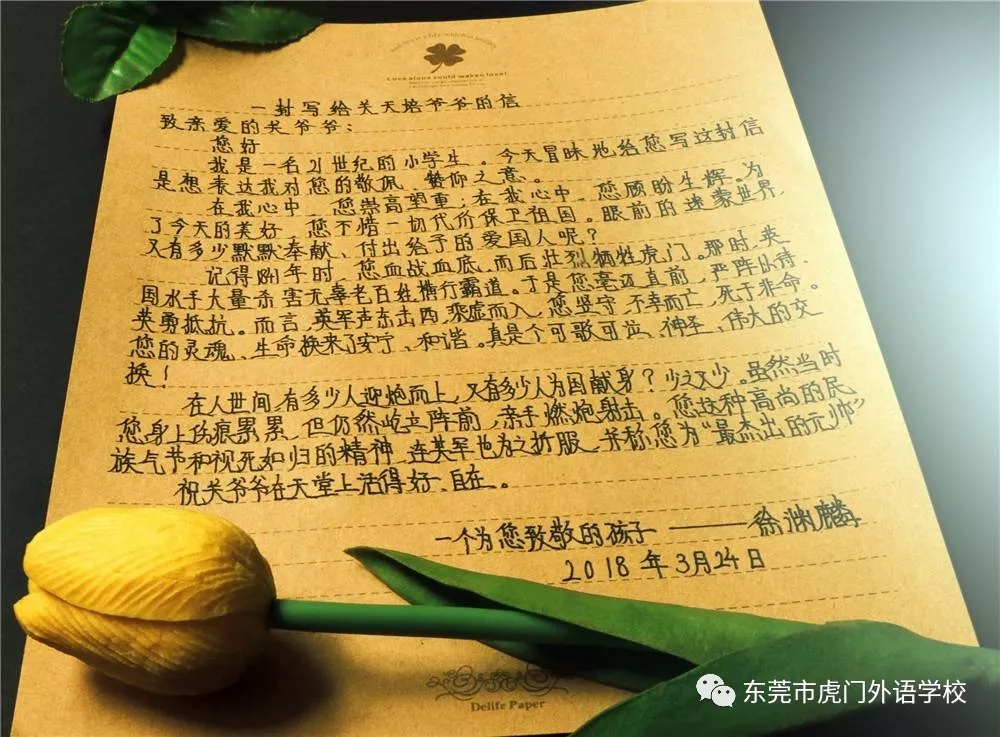 Love alone could waken love!
一封写给关天培爷爷的信
致亲爱的关爷爷：
您好
我是一名21世纪的小学生。今天冒昧地给您写这封信
是想表达我对您的敬佩、赞仰之意。
在我心中，您崇高望重；在我心中，您顾盼生辉。为
了今天的美好，您不惜一切代价保卫祖国。眼前的迷蒙世界，
又有多少默默奉献、付出给予的爱国人呢？
记得1841年时，您血战血底，而后壮烈牺牲虎门。那时，英
国水手大量杀害无辜老百姓，横行霸道。于是您毫迈直前，严阵以待，
英勇抵抗。而言，英军声东击西，乘虚而入，您坚守，不幸而亡，死于非命。
您的灵魂、生命换来了安宁、和谐。真是个可歌可泣、神圣、伟大的交
换！
在人世间，有多少人迎炮而上，又有多少人为国献身？少之又少。虽然当时
您身上伤痕累累，但仍然屹立阵前，亲手燃炮射击。您这种高尚的民
族气节和视死如归的精神，连英军也为之折服，并称您为“最杰出的元帅”
祝关爷爷在天堂上活得好、自在。
一个为您致敬的孩子 ——— 徐渊麟
2018年3月24日
Delife Paper
东莞市虎门外语学校